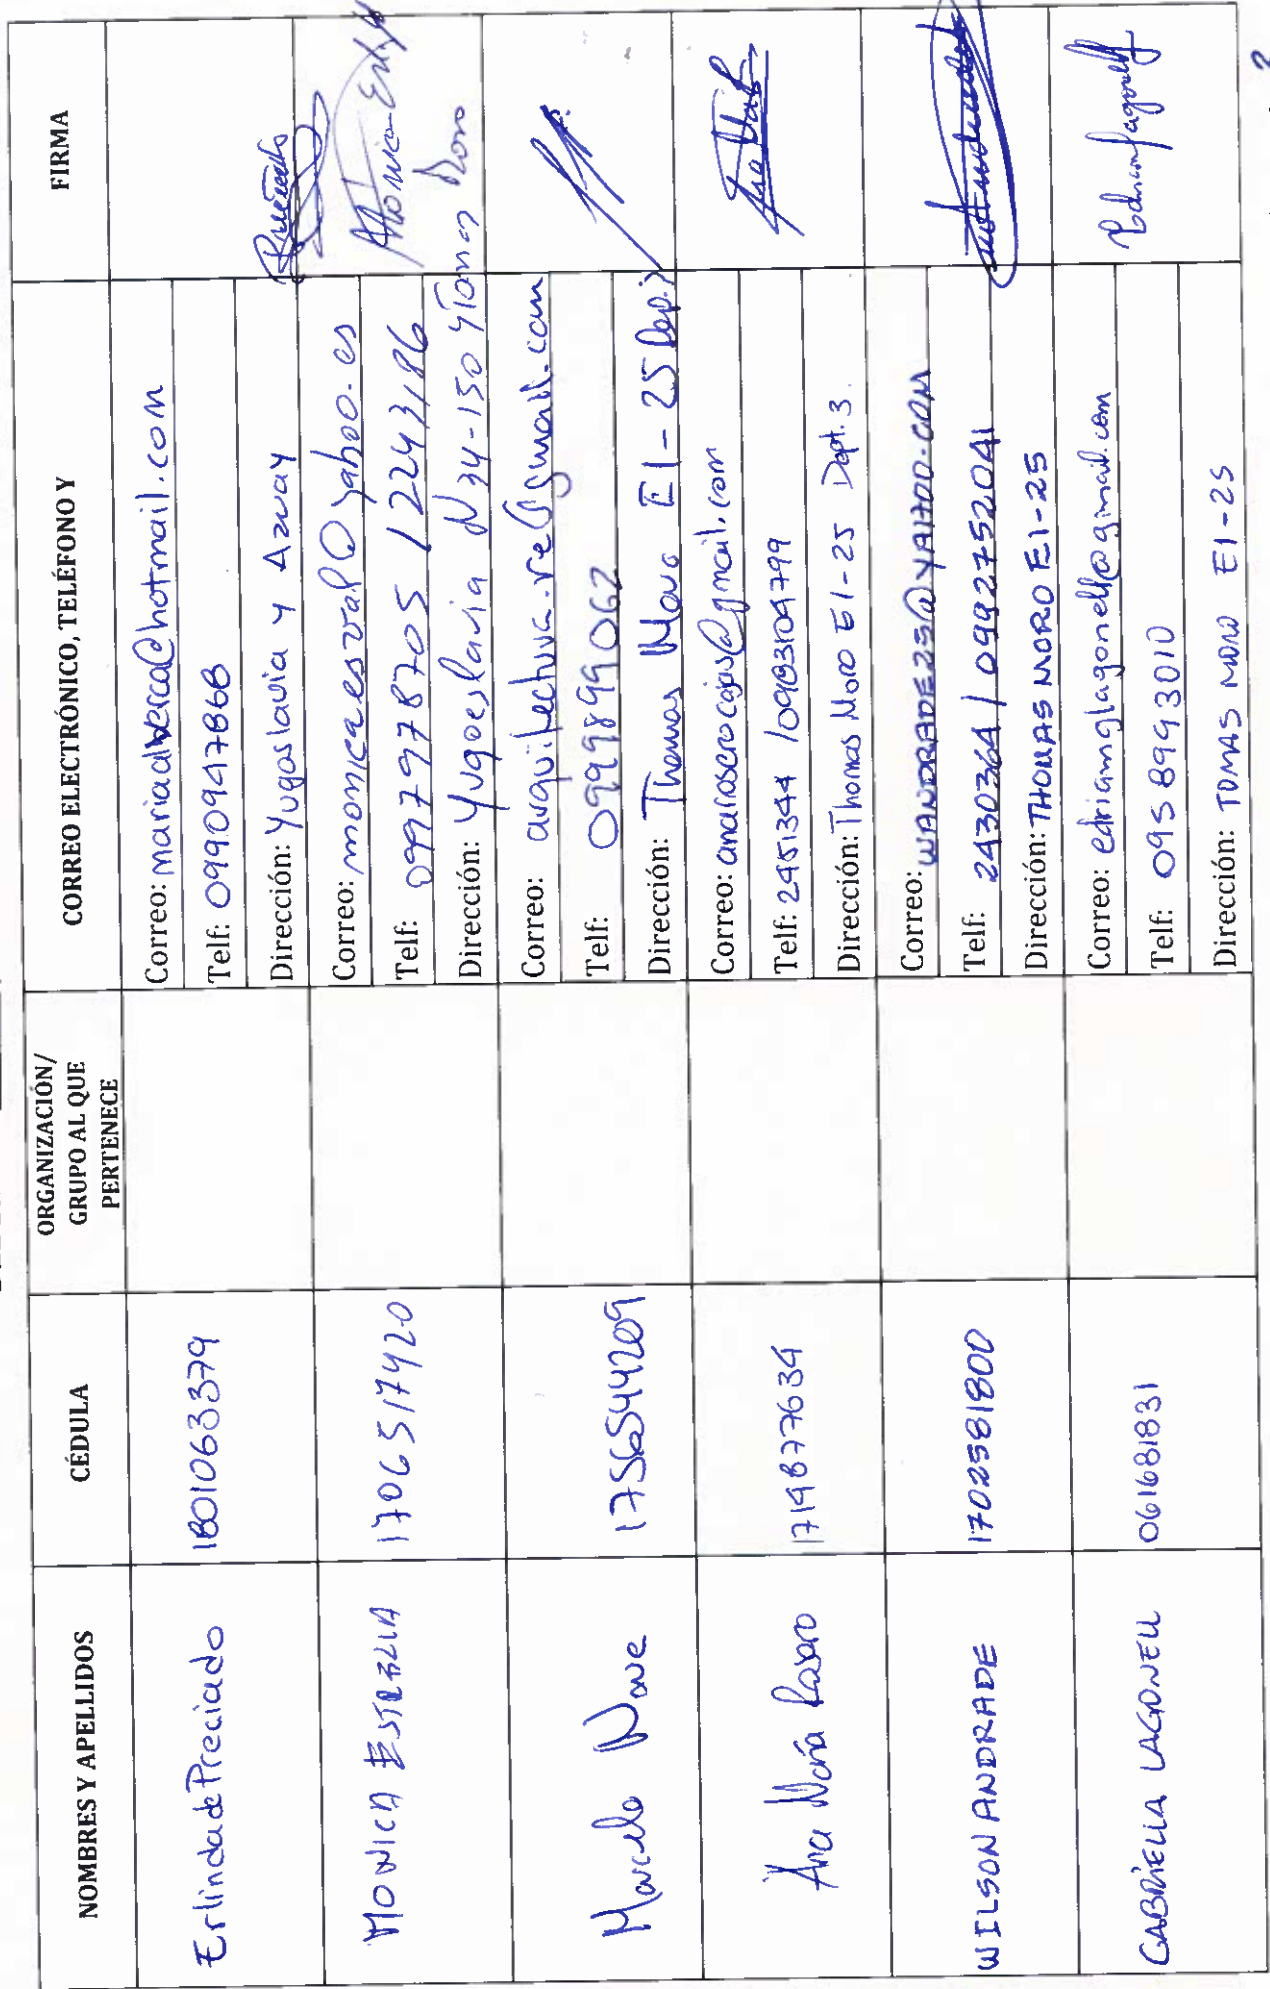 NOMBRES Y APELLIDOS
CÉDULA
ORGANIZACIÓN/
GRUPO AL QUE
PERTENECE
CORREO ELECTRÓNICO, TELÉFONO Y
FIRMA
Erlinda de Preciado
1801063379
Correo: mariadverca@hotmail.com
Telf: 0990947868
Dirección: Yugoslavia y Azuay
MONICA ESTRELLA
1706517420
Correo: monicaesval@yahoo.es
Telf: 0997978705 / 2243186
Dirección: Yugoeslavia N34-150 y Tomas Moro
Marcelo Nave
1756544209
Correo: arquitectura.re@gmail.com
Telf: 0999899062
Dirección: Thomas Moro E1-25 Dep.
Ana María Rasero
1719877634
Correo: anaraserocajas@gmail.com
Telf: 2451344 / 0983104799
Dirección: Thomas Moro E1-25 Dept. 3.
WILSON ANDRADE
1702581800
Correo: WANDRADE23@YAHOO.COM
Telf: 2430364 / 0992752041
Dirección: THOMAS MORO E1-25
GABRIELLA LAGONELL
061681831
Correo: edrianglagonell@gmail.com
Telf: 0958993010
Dirección: TOMAS MORO E1-25